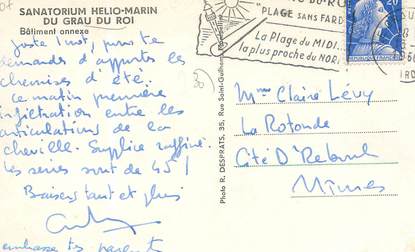 SANATORIUM HELIO-MARIN
DU GRAU DU ROI
Bâtiment annexe
Juste 1 mot, pour te
demander d'apporter les
chemises d'été.
Ce matin première
infiltration entre les
articulations de la
cheville. Supplice raffiné.
Les séries sont de 45 !
Baisers tant et plus
embrasse tes parents
Photo R. DESPRATS, 35, Rue Saint-Guilhem, Montpellier
"PLAGE SANS FARD"
La Plage du MIDI...
la plus proche du NORD
20
Mme Claire Lévy
La Rotonde
Cité D'Reboul
Nîmes